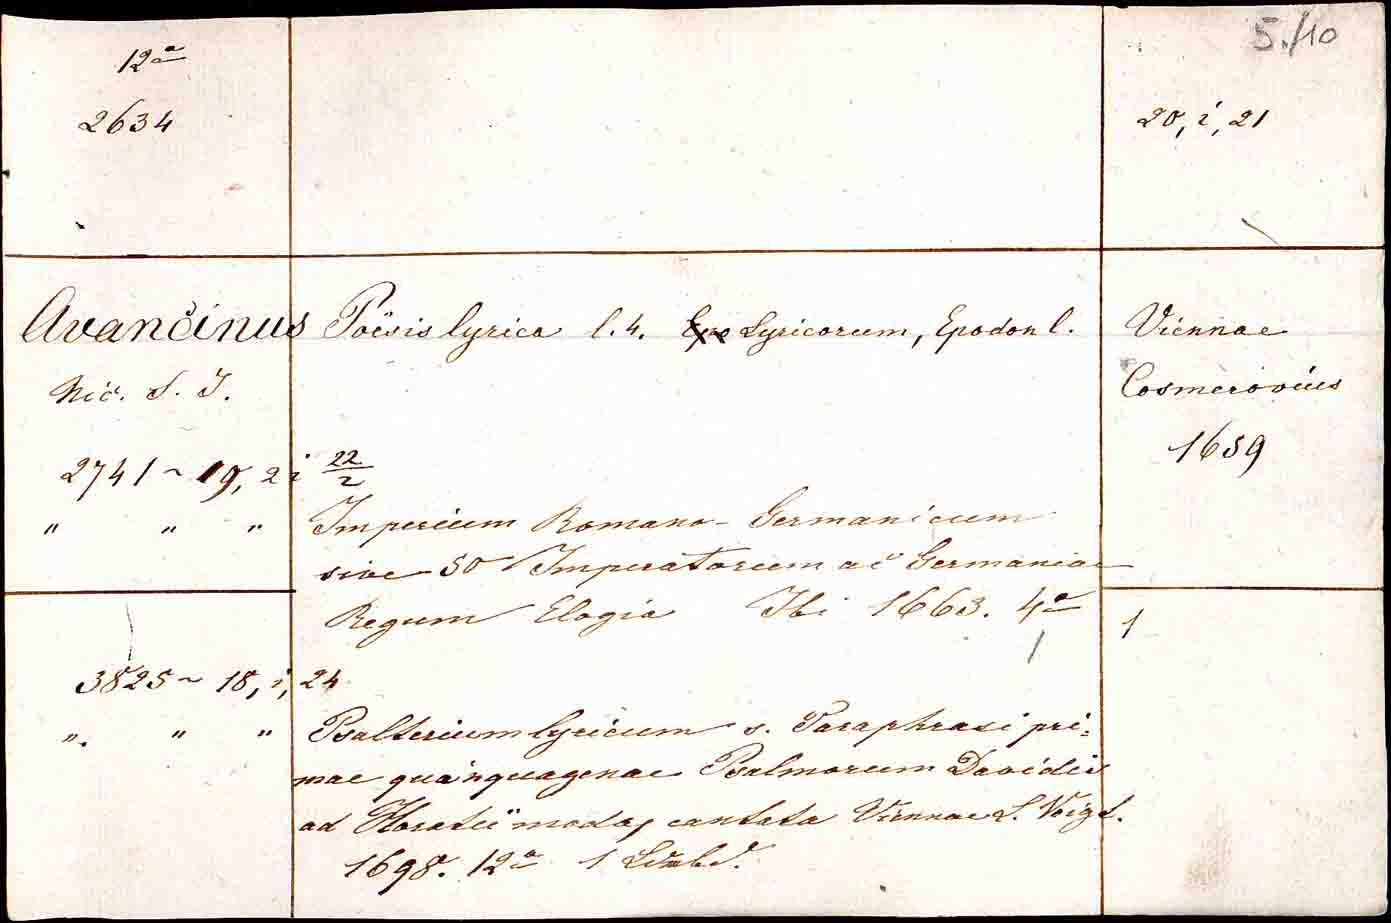 5./10
12a
2634
20, i, 21
Avancinus Poësis lyrica l. 4. Lyricorum, Epodon l. Viennae
Nic. S. J. Cosmerovius
1659
2741 ~ 19, 2 i 22/2
" " " Imperium Romano-Germanicum
sive 50 Imperatorum ac Germaniae
Regum Elogia Ibi 1663. 4a 1
3825 ~ 18, i, 24
" " " Psalterium lyricum s. Paraphrasi pri=
mae quinquagenae Psalmorum Davidis
ad Horatii modos cantata Viennae L. Voigt.
1698. 12a 1